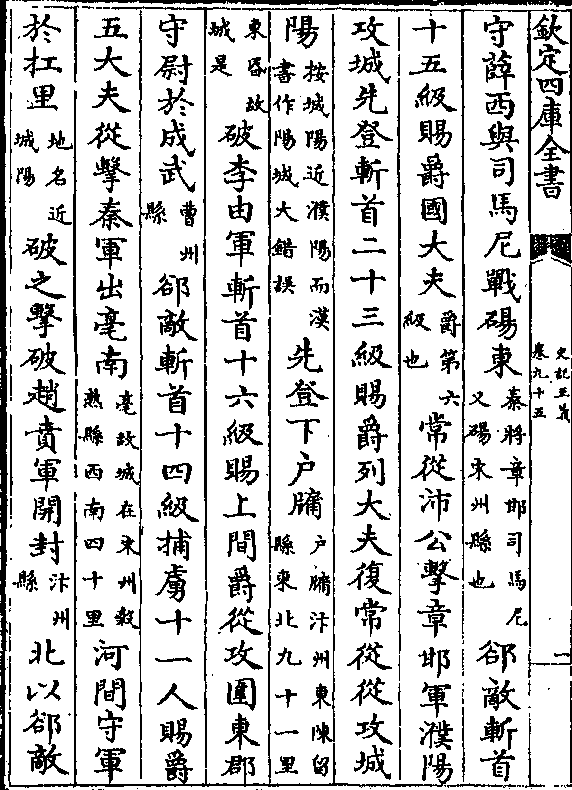 欽定四庫全書
史記正義
卷九十五
一
守薛西與司馬尼戰碭東秦將章邯司馬尼又碭宋州縣也郤敵斬首
十五級賜爵國大夫爵第六級也常從沛公擊章邯軍濮陽
攻城先登斬首二十三級賜爵列大夫復常從從攻城
陽按城陽近濮陽而漢書作陽城大錯誤先登下户牖户牖汴州東陳留縣東北九十一里
東昬故城是破李由軍斬首十六級賜上間爵從攻圍東郡
守尉於成武曹州縣郤敵斬首十四級捕虜十一人賜爵
五大夫從擊秦軍出亳南亳故城在宋州穀熟縣西南四十里河間守軍
於杠里地名近城陽破之擊破趙賁軍開封汴州縣北以郤敵